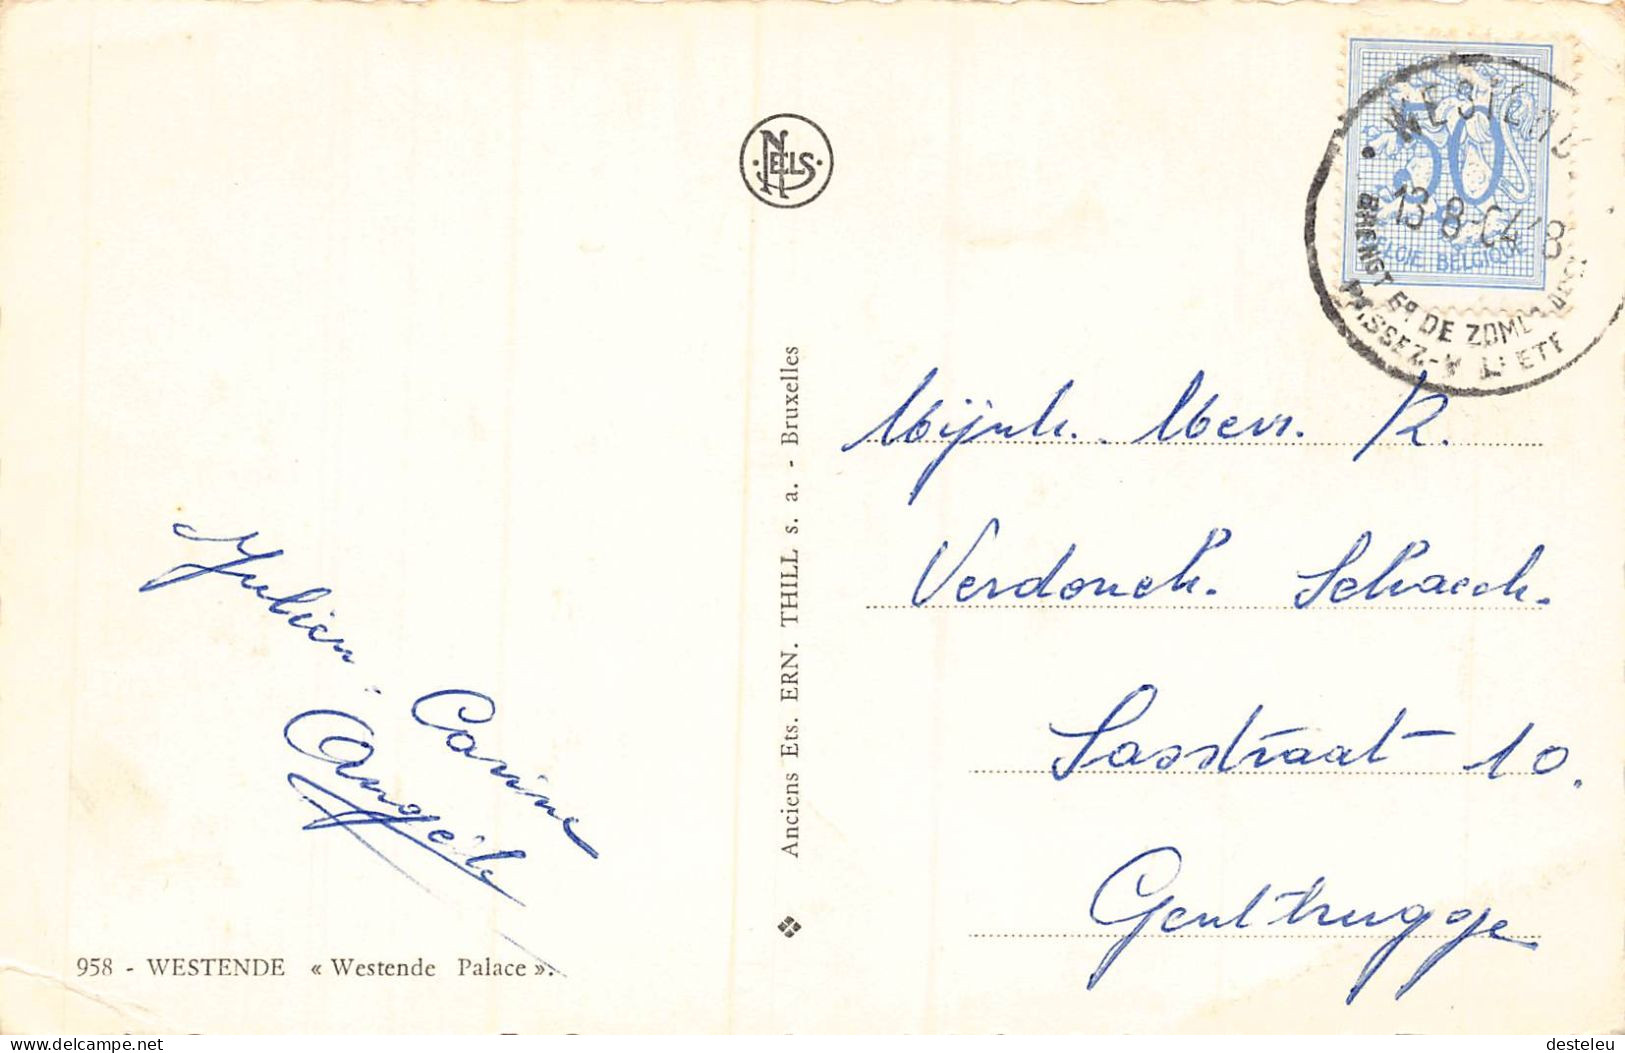 NELS
WESTENDE
13-8
50
BELGIE BELGIQUE
BRENGT ER DE ZOMER
PASSEZ-Y L'ETE
Mijnh. Mevr. R.
Verdonck. Schaeck.
Sasstraat 10.
Gentbrugge
Julien.
Carine
Angèle
Anciens Ets. ERN. THILL s. a. - Bruxelles
958 - WESTENDE « Westende Palace ».
www.delcampe.net
desteleu